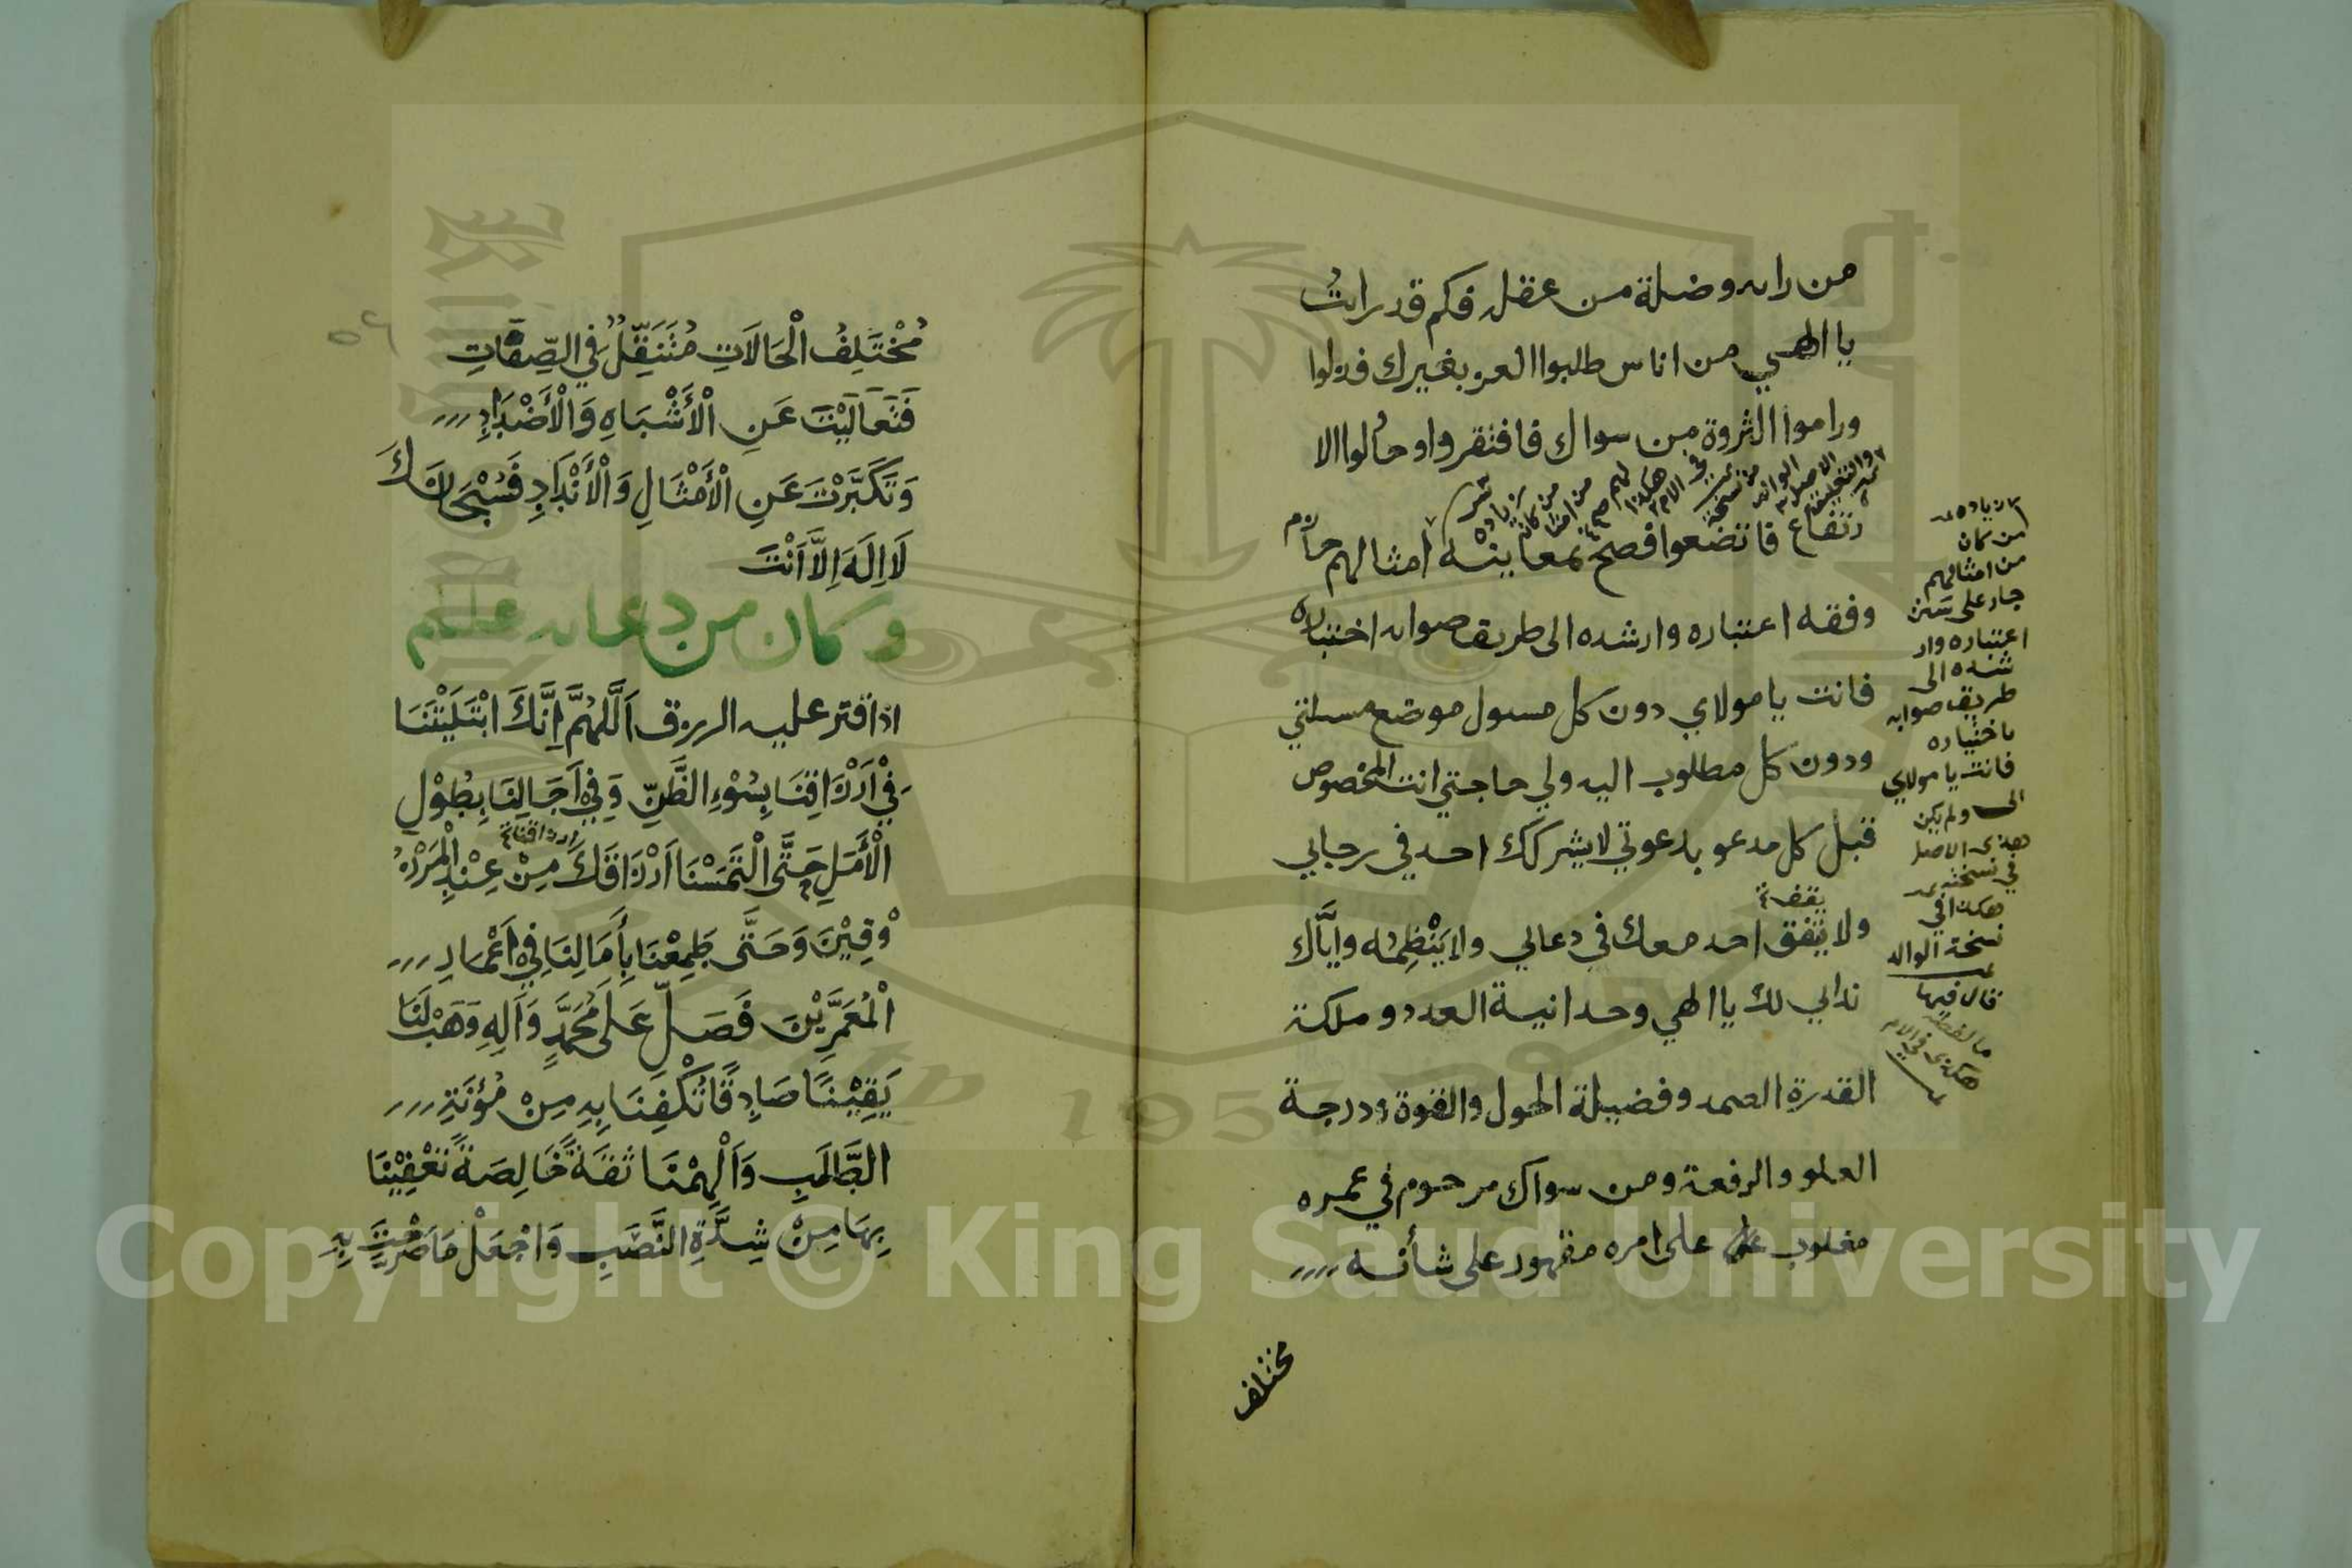 من رايه وضلة من عقله فكم قد رايتُ
يا الهي من اناس طلبوا العز بغيرك فذلوا
وراموا الثروة من سواك فافتقروا وحاولوا الا
رتفاع فاتضعوا فصح بمعاينة امثالهم حازم
وفقه اعتباره وارشده الى طريق صوابه اختياره
فانت يا مولاي دون كل مسول موضع مسلتي
ودون كل مطلوب اليه ولي حاجتي انت المخصوص
قبل كل مدعو بدعوتي لا يشركك احد في رجايي
يتفق
ولا يتفق احد معك في دعايي ولا يَنْظِمُه واِيَّاك
ندايي لك يا الهي وحدانية العدد وملكة
القدرة الصمد وفضيلة الحول والقوة ودرجة
العلو والرفعة ومن سواك مرحوم في عمره
مغلوب على امره مقهور على شأنه
مختلف
زيادة
من كان
من امثالهم
جار على سنن
اعتباره وار
شده الى
طريق صوابه
باختياره
فانت يا مولاي
الى ولم يكن
هذى الاصل
في نسخته
هكذا في
نسخة الوالد
قال فيها
ما لفظه
هكذى في الام
مُخْتَلِفُ الْحَالَاتِ مُتَنَقِّلٌ فِي الصِّفَاتِ
فَتَعَالَيْتَ عَنِ الْأَشْبَاهِ وَالْأَضْدَادِ
وَتَكَبَّرْتَ عَنِ الْأَمْثَالِ وَالْأَنْدَادِ فَسُبْحَانَكَ
لَا اِلَهَ اِلَّا اَنْتَ
وكان من دعائه عليه السلم
اذا قتر عليه الرزق اَللَّهُمَّ اِنَّكَ ابْتَلَيْتَنَا
فِيْ اَرْزَاقِنَا بِسُوْءِ الظَّنِّ وَفِيْ اَجَالِنَا بِطُوْلِ
ارزاقنا
الْأَمَلِ حَتَّى الْتَمَسْنَا اَرْزَاقَكَ مِنْ عِنْدِ الْمَرْزُ
وْقِيْنَ وَحَتَّى طَمِعْنَا بِأَمَالِنَا فِيْ اَعْمَارِ
الْمُعَمَّرِيْنَ فَصَلِّ عَلَى مُحَمَّدٍ وَاَلِهِ وَهَبْ لَنَا
يَقِيْنًا صَادِقًا تَكْفِنَا بِهِ مِنْ مُؤْنَةِ
الطَّلَبِ وَاَلْهِمْنَا ثِقَةً خَالِصَةً تُعْفِيْنَا
بِهَا مِنْ شِدَّةِ النَّصَبِ وَاجْعَلْ مَا صَرَّحْتَ بِهِ
Copyright © King Saud University